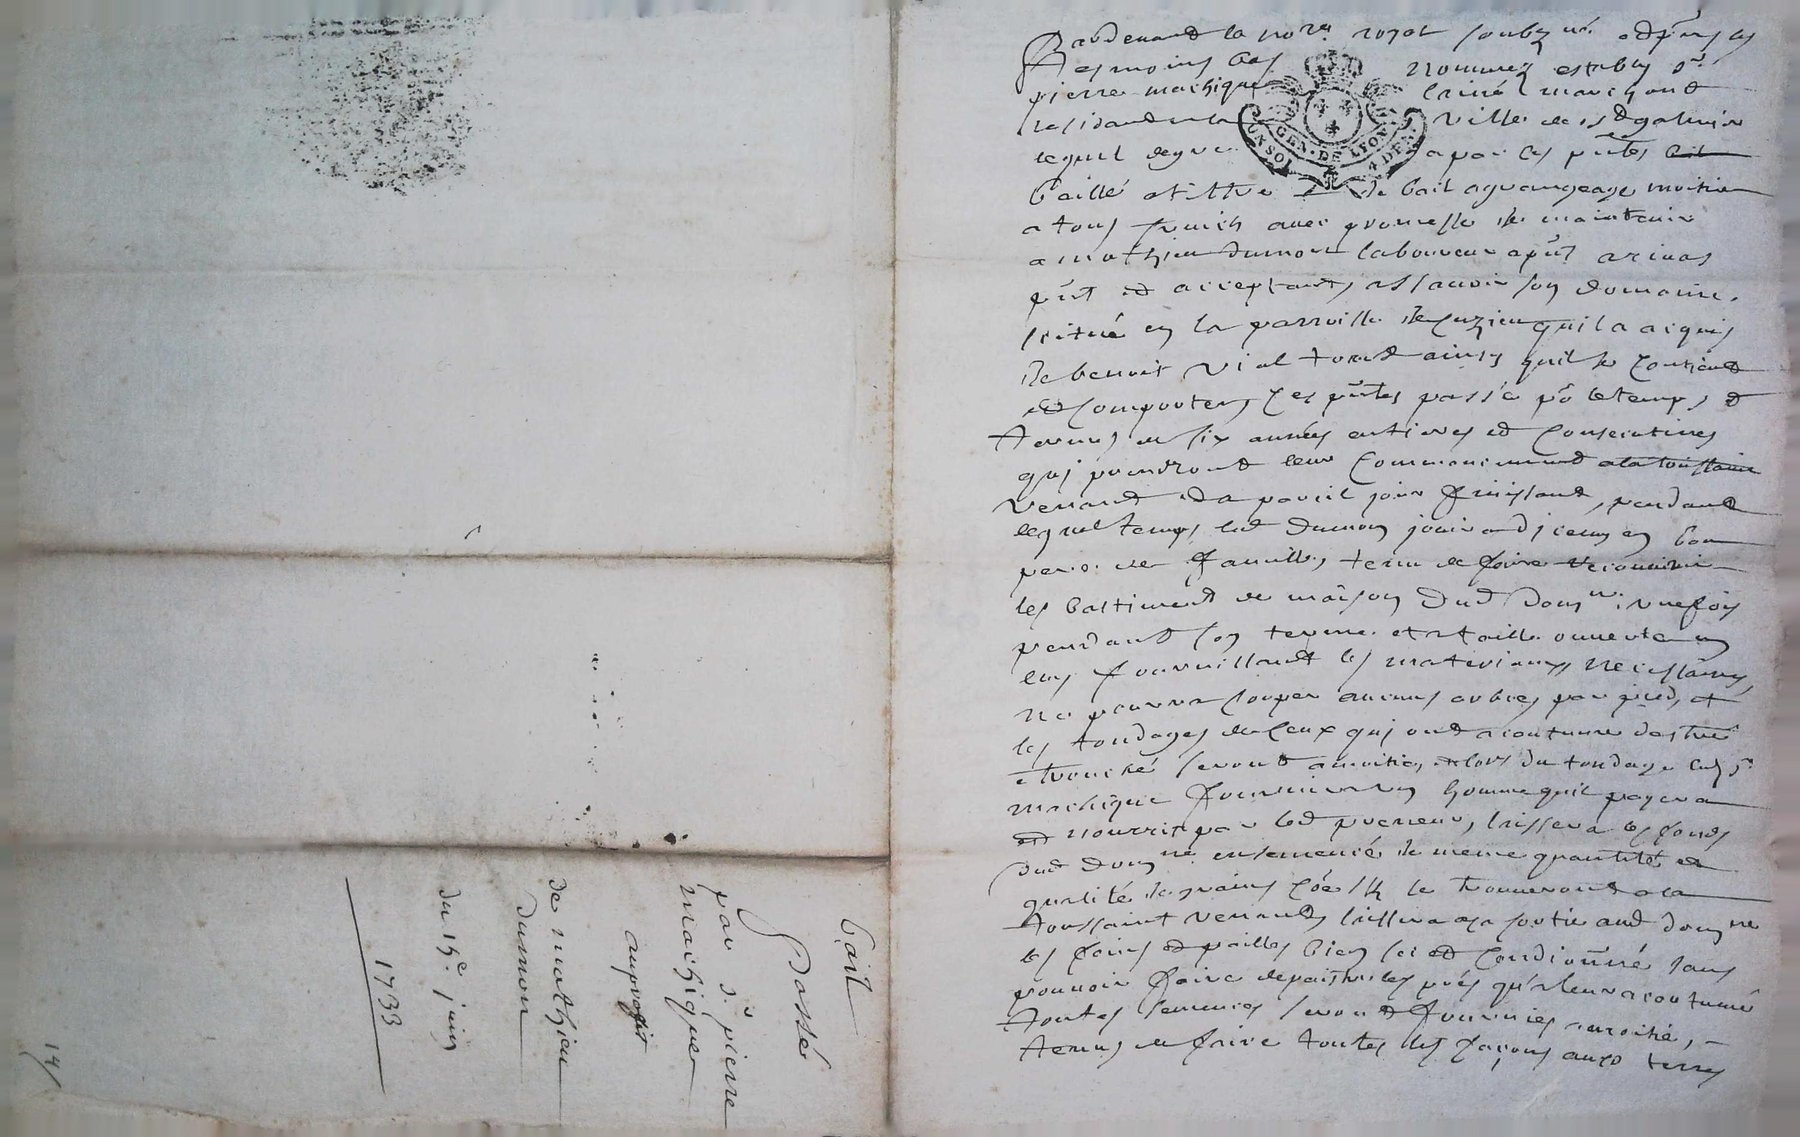 Bail
Passé
par Sr. pierre
machique
au profit
de mathieu
dumon
du 15e. juin
1733
14/
GEN. DE LYON
UN SOL 4 DEN.
Pardevant la nore. royal soubzné. et dpns les
tesmoins bas nommez estably Sr.
pierre machique laîné marchand
residand en la ville de st galmier
lequel de gré a par ces pntes
baillé a tittre de bail a grangeage moitié
a tous fruicts avec promesse de maintenir
a mathieu dumon laboureur apnt
pnt et acceptant, assavoir son domaine
scitué en la parroisse de Cuzieu qui la acquis
de benoit vial tout ainsy quil se contient
et comporte, ces pntes passée po le temps &
terme de six années entieres et consecutives
qui prendront leur commencement a la toussaint
venant et a pareil jour finissant, pendant
lequel temps led dumon jouira dicelluy en bon
pere de famille, tenu de faire recouvrir
les bastiment de maison dud domne. une fois
pendant son terme et a taille ouverte en
luy fournissant les materiaux necessaires,
ne pourra couper aucuns arbres par pied, et
les tondages de ceux qui ont acoutume destre
ebranché seront a moitié, et lors du tondage led Sr
machique fournira un homme quil payera
et nourrit par led preneur, laissera les fonds
dud domne ensemencé de meme quantité et
qualité de grains coe ils se trouveront a la
toussaint venant, laissera a sa sortie aud domne
les foins et pailles bien sec et conditionné sans
pouvoir faire depaistre les prés qu'a leur acoutumé
toutes semences seront fournies a moitié,
tenus de faire toutes les façons aux terres